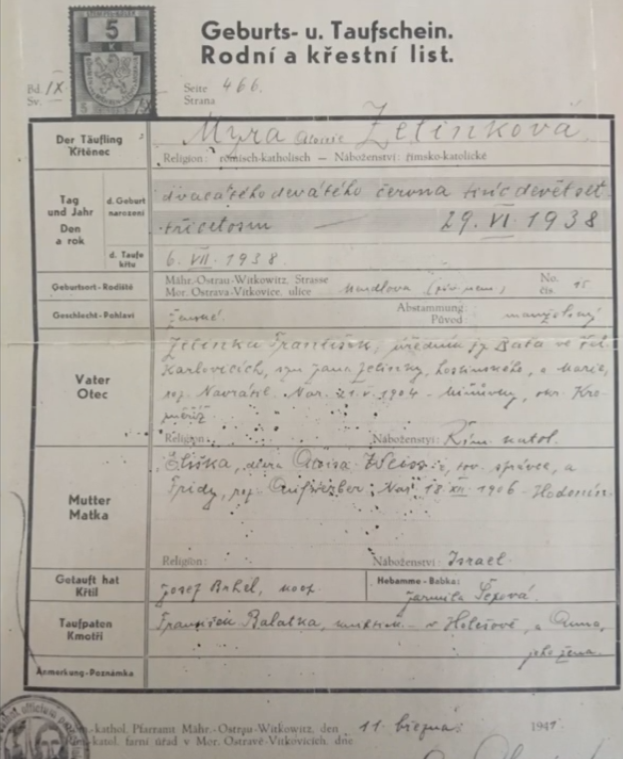 5
K
Geburts- u. Taufschein.
Rodní a křestní list.
Bd. IX.
Sv.
Seite 466.
Strana
Der Täufling
Křtěnec
Myra Zelinková
Religion: römisch-katholisch — Náboženství: římsko-katolické
Tag
und Jahr
Den
a rok
d. Geburt
narození
dvacátého devátého června
třicetosm — 29. VI. 1938
d. Taufe
křtu
6. VII. 1938.
Geburtsort - Rodiště
Mähr.-Ostrau-Witkowitz, Strasse
Mor. Ostrava-Vítkovice, ulice
No.
čís. 15
Geschlecht - Pohlaví
ženské
Abstammung:
Původ: manželský
Vater
Otec
Zelinka František, úředník fy Baťa ve Vel.
Karlovicích, syn Jana Zelinky, hostinského, a Marie,
roz. Navrátil. Nar. 21. V. 1904 okr. Kro-
měříž
Religion:
Náboženství: Řím. katol.
Mutter
Matka
Eliška, dcera Aloisa správce, a
Fridy, roz. Nar. 18. XII. 1906
Religion:
Náboženství: Israel.
Getauft hat
Křtil
Josef
Hebamme - Babka:
Jarmila
Taufpaten
Kmotři
František Balatka, v Holešově, a Anna,
jeho žena.
Anmerkung - Poznámka
kathol. Pfarramt Mähr.-Ostrau-Witkowitz, den 11 března 1941.
katol. farní úřad v Mor. Ostravě-Vítkovicích, dne